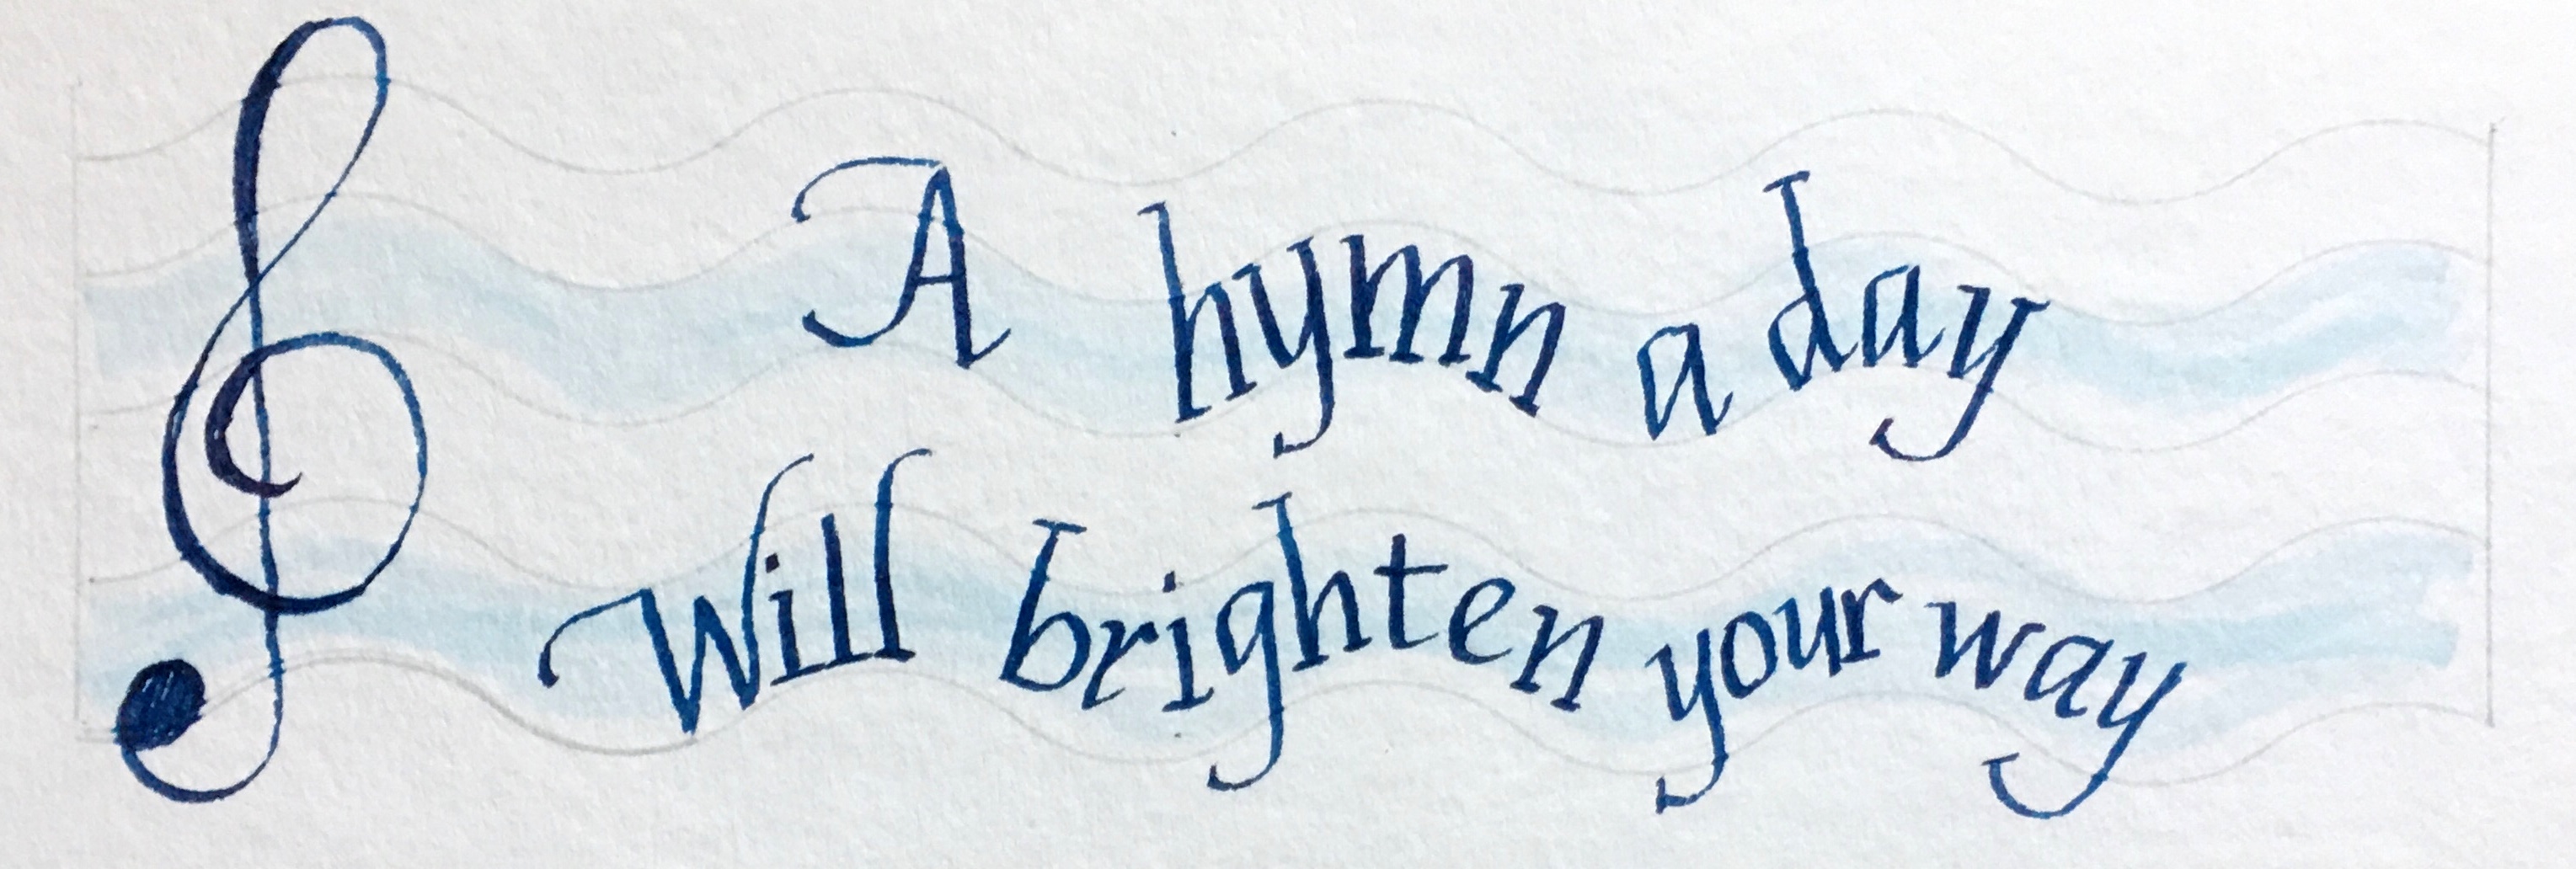 A hymn a day
Will brighten your way